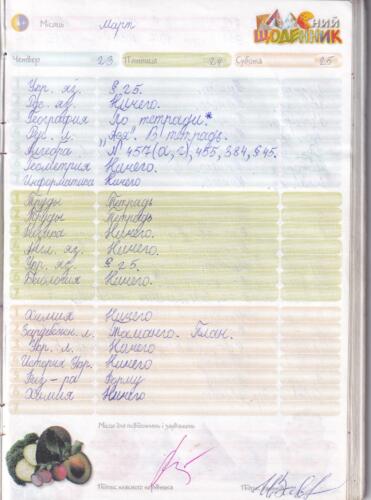 Місяць Март
КЛАСНИЙ
ЩОДЕННИК
Четвер 23 П'ятниця 24 Субота 25
Укр. яз. § 25.
Рус. яз. Ничего.
География По тетради.*
Рус. л. "Ася". В тетрадь.
Алгебра № 457(а,г), 455, 384, § 45.
Геометрия Ничего.
Информатика Ничего
Труды Тетрадь
Труды Тетрадь
Физика Ничего.
Англ. яз. Ничего.
Укр. яз. § 25.
Биология Ничего.
Химия Ничего
Зарубежн. л. Таманго. План.
Укр. л. Ничего
История Укр. Ничего
Физ-ра Форму
Химия Ничего
Місце для повідомлень і зауважень
Підпис класного керівника